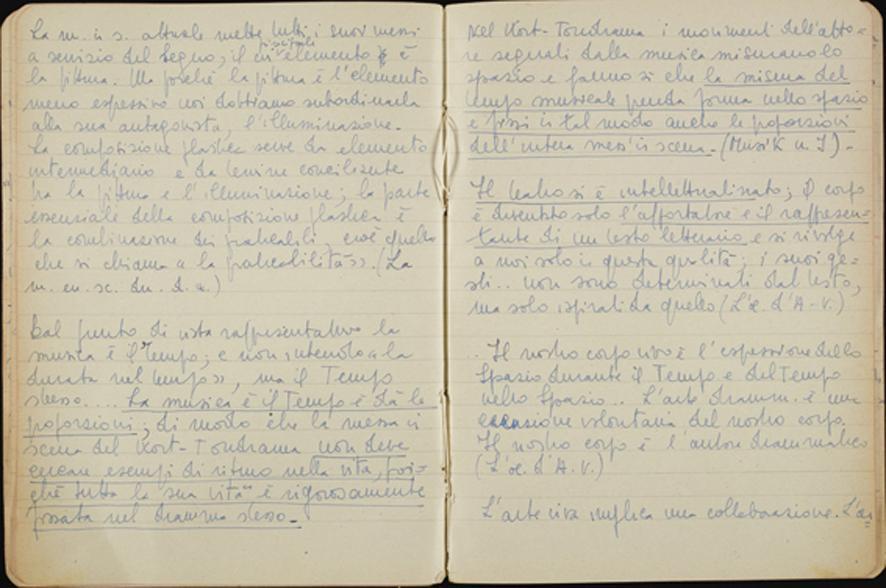 La m. i s. attuale mette tutti i suoi mezzi
a servizio del segno; il cui principale elemento è
la pittura. Ma poiché la pittura è l'elemento
meno espressivo noi dobbiamo subordinarla
alla sua antagonista, l'illuminazione.
La composizione plastica serve da elemento
intermediario e da termine conciliante
tra la pittura e l'illuminazione; la parte
essenziale della composizione plastica è
la combinazione dei praticabili, cioè quella
che si chiama « la praticabilità ». (La
m. en. sc. du. d. w.)
Dal punto di vista rappresentativo la
musica è il Tempo; e non intendo « la
durata nel tempo », ma il Tempo
stesso.... La musica è il Tempo e dà le
proporzioni; di modo che la messa in
scena del Wort-Tondrama non deve
cercare esempi di ritmo nella vita, poi=
ché tutta la "sua vita" è rigorosamente
fissata nel dramma stesso.
Nel Wort-Tondrama i movimenti dell'atto=
re segnati dalla musica misurano lo
spazio e fanno sì che la misura del
tempo musicale prenda forma nello spazio
e fissi in tal modo anche le proporzioni
dell'intera mess'in scena. (Musik u. I) -
Il teatro si è intellettualizzato; il corpo
è diventato solo l'apportatore e il rappresen=
tante di un testo letterario e si rivolge
a noi solo in questa qualità; i suoi ge=
sti.. non sono determinati dal testo,
ma solo ispirati da quello (L'œ. d'A. V.)
.. Il nostro corpo vivo è l'espressione dello
Spazio durante il Tempo e del Tempo
nello Spazio.. L'arte dramm. è una
creazione volontaria del nostro corpo.
Il nostro corpo è l'autore drammatico
(L'œ. d'A. V.)
L'arte viva implica una collaborazione. L'ar